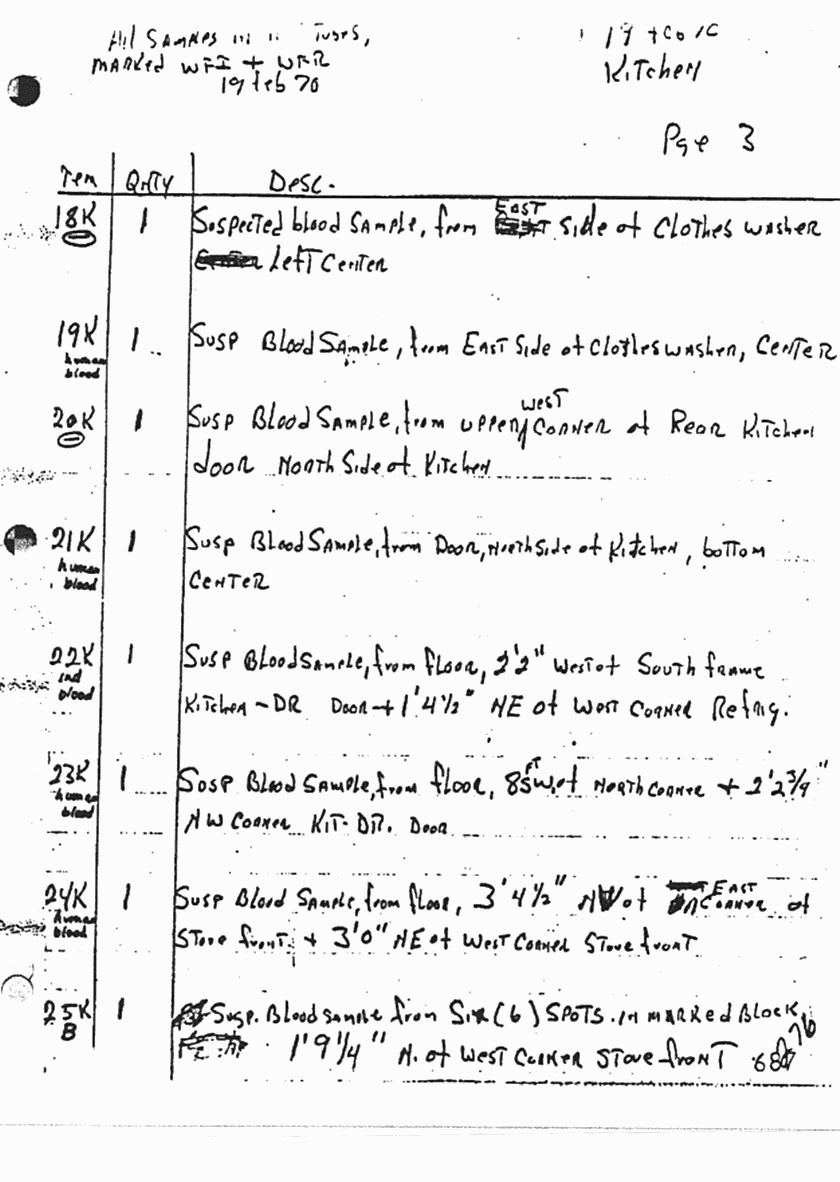 All Samples in Tubes,
MARKed WFI + WFR
19 feb 70
19
KiTcheN
Pge 3
ITem Qnty Desc.
18K 1 Suspected blood SAMple, from EAST Side of Clothes WASHER
LefT CenteR
19K 1 Susp Blood SAmple, from EAST Side of ClotheswASHeR, CenteR
human
blood
20K 1 Susp Blood SAMple, from UPPeR West CoRNeR of ReaR KiTcheN
dooR NoRth Side of KiTcheN
21K 1 Susp Blood SAmple, from DooR, NoRth Side of KiTcheN, boTTom
human
blood
CeNTeR
22K 1 Susp Blood SAmple, from flooR, 2'2" West of SouTh frame
ind
blood
KiTcheN-DR DooR + 1'4½" NE of West CoRNeR Refrig.
23K 1 Susp Blood SAmple, from flooR, of NoRTh CoRNeR + 2'2¾"
human
blood
NW CoRNeR KiT-DR. DooR
24K 1 Susp Blood SAmple, from flooR, 3'4½" NW of EAST CoRNeR of
human
blood
STove fronT + 3'0" NE of WesT CoRNeR STove fronT
25K 1 Susp. Blood sample from Six (6) SPOTS in MARKed Block,
B
1'9¼" N. of WesT CoRNeR STove fronT